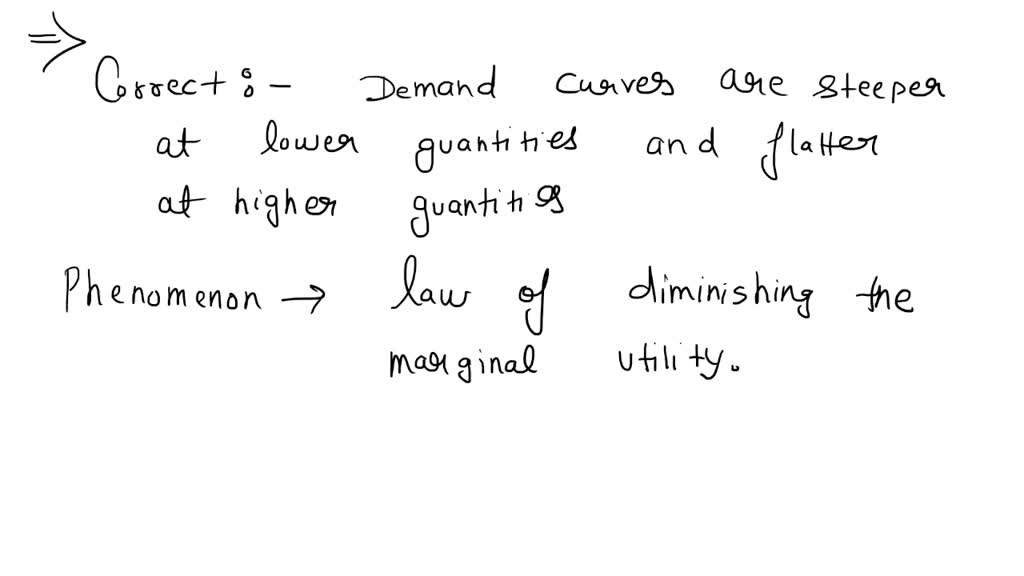 ⇒
Correct :- Demand curves are steeper
at lower quantities and flatter
at higher quantities
Phenomenon → law of diminishing the
marginal utility.